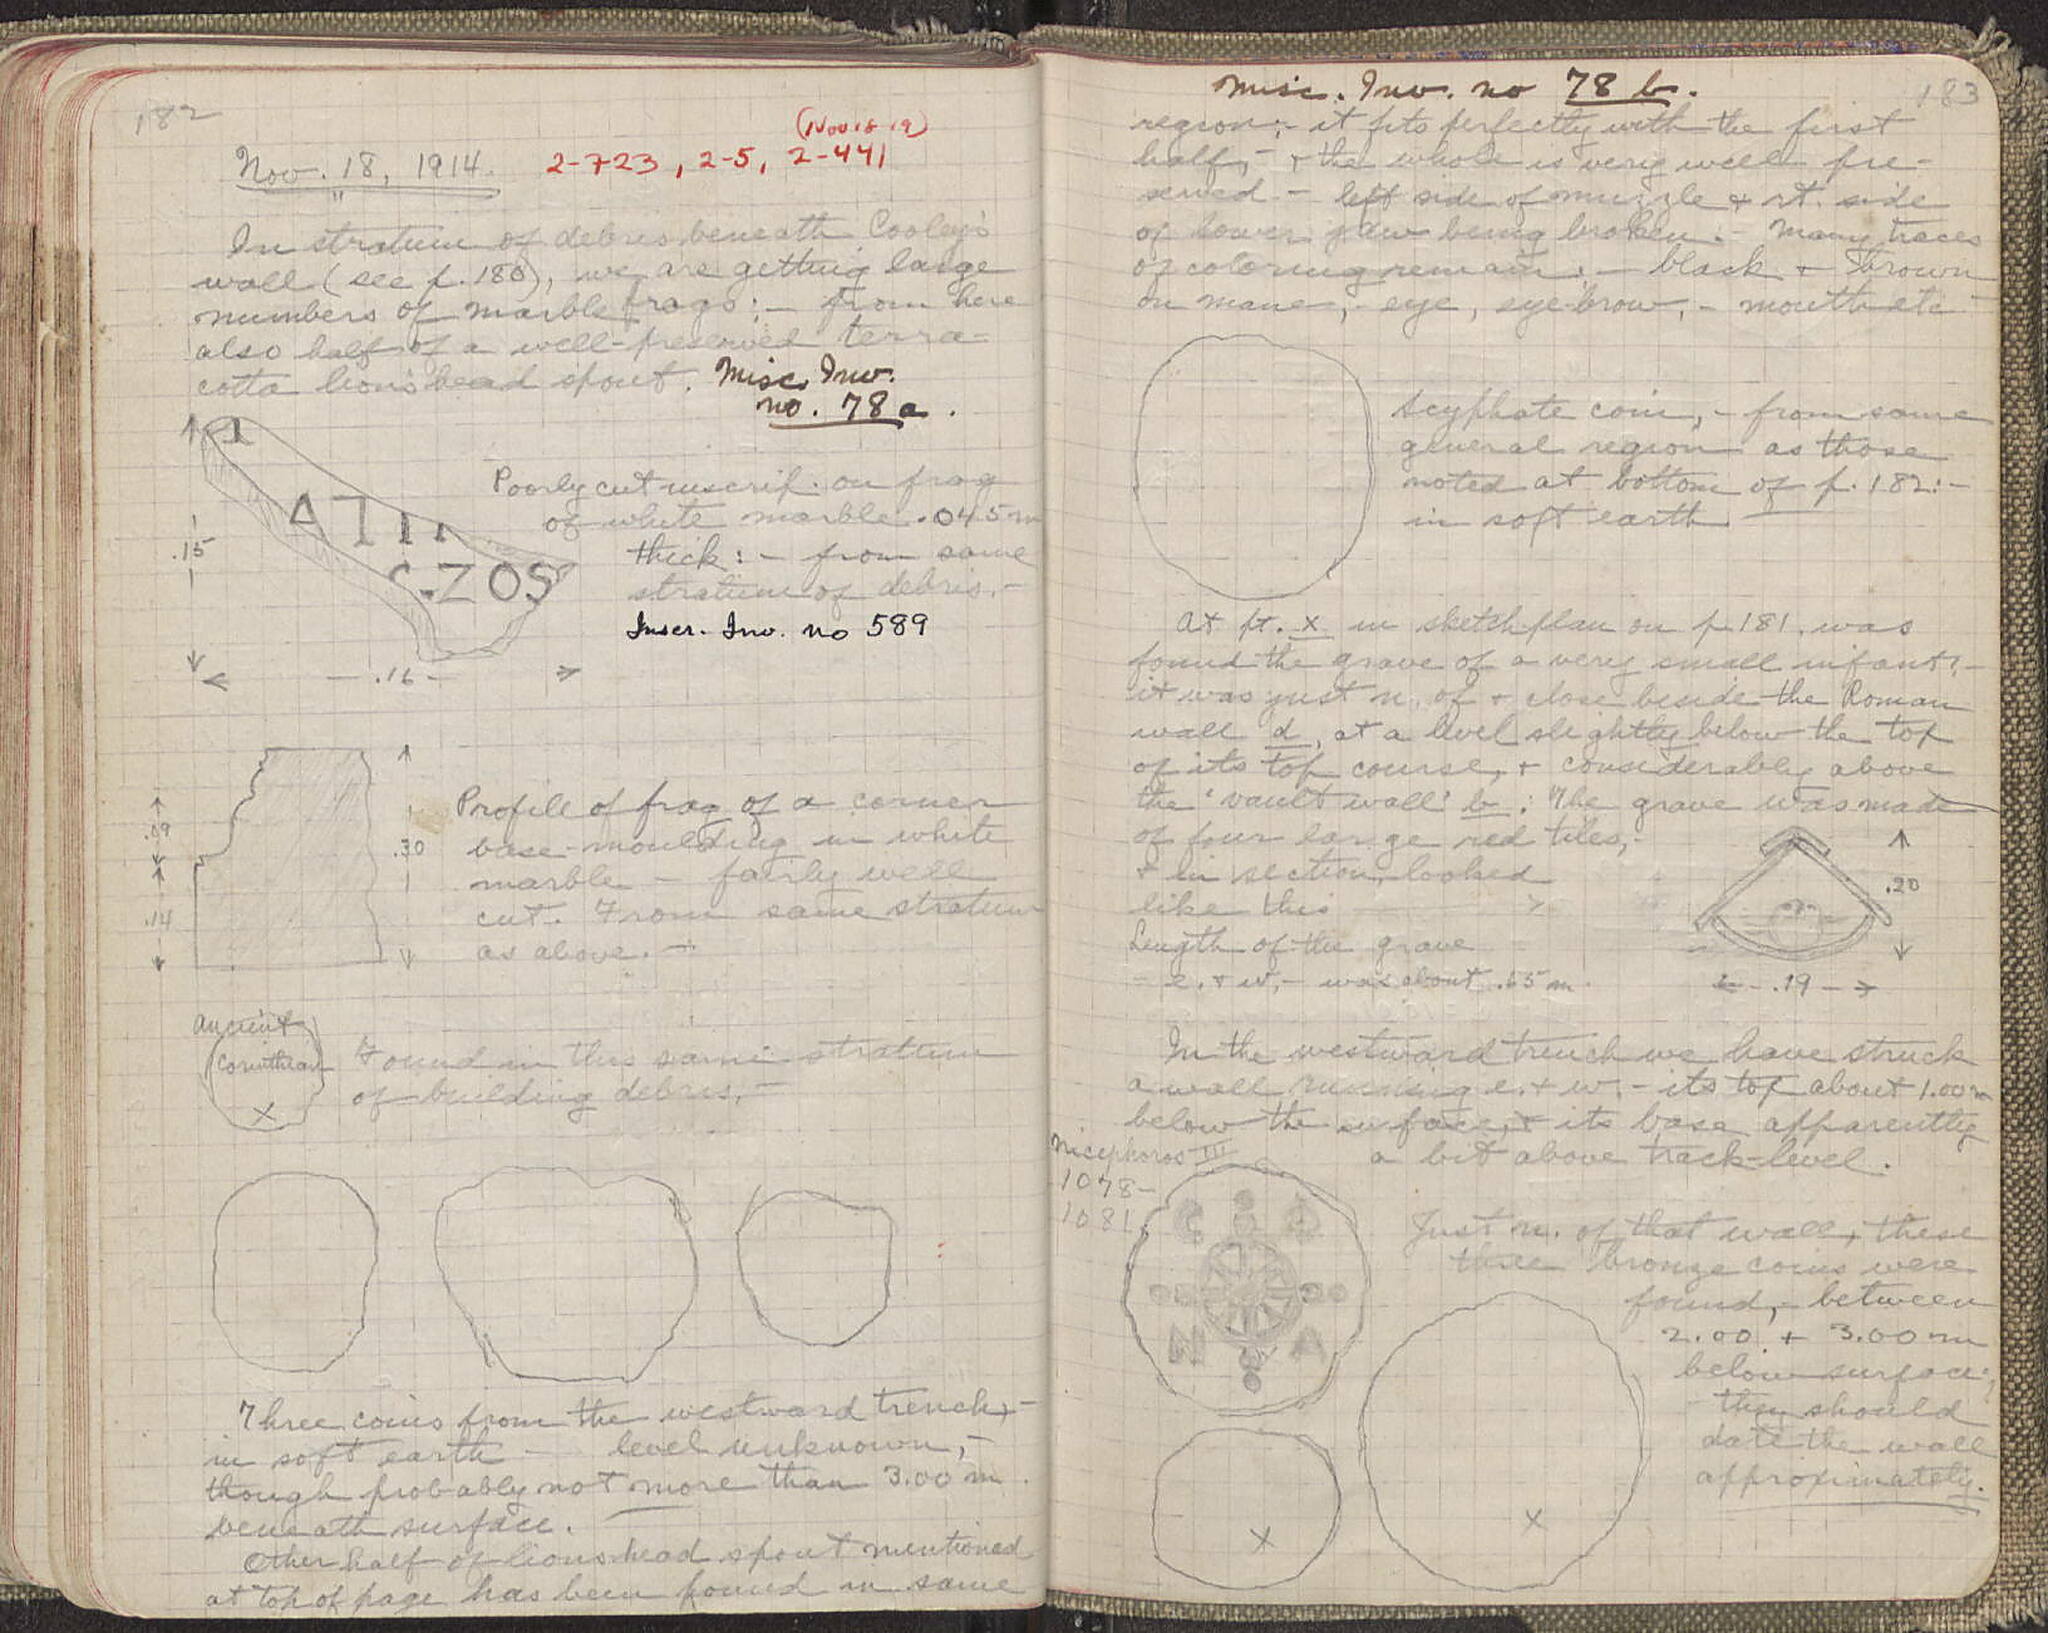 182
(Nov 18-19)
Nov. 18, 1914. 2-723, 2-5, 2-441
In stratum of debris beneath Cooley's
wall (see p. 180), we are getting large
numbers of marble frags:- from here
also half of a well-preserved terra-
cotta lion's head spout. Misc. Inv.
no. 78a.
ΑΤΙ
ΖΟΣ
.15
.16
Poorly cut inscrip. on frag
of white marble .045 m
thick:- from same
stratum of debris.-
Inscr. Inv. no 589
.09
.14
.30
Profile of frag of a corner
base-moulding in white
marble - fairly well
cut. From same stratum
as above.-
Ancient
Corinthian
X
Found in this same stratum
of building debris,-
Three coins from the westward trench,-
in soft earth - level unknown,-
though probably not more than 3.00 m.
beneath surface.
Other half of lionshead spout mentioned
at top of page has been found in same
183
Misc. Inv. no 78 b.
region;- it fits perfectly with the first
half,- + the whole is very well pre-
served - left side of muzzle + rt. side
of lower jaw being broken.- Many traces
of coloring remain:- black + brown
on mane,- eye, eye-brow,- mouth etc
Scyphate coin,- from same
general region as those
noted at bottom of p. 182:-
in soft earth
At pt. x in sketch-plan on p. 181. was
found the grave of a very small infant;-
it was just n. of + close beside the Roman
wall d, at a level slightly below the top
of its top course, + considerably above
the 'vault wall' b. The grave was made
of four large red tiles,-
+ in section, looked
like this
.20
.19
Length of the grave
- e. + w,- was about .55 m.
In the westward trench we have struck
a wall running e. + w.- its top about 1.00 m
below the surface, + its base apparently
a bit above track-level.
Nicephoros III
1078-
1081
C Φ
N Δ
Just n. of that wall, these
three bronze coins were
found,- between
2.00 + 3.00 m
below surface;
they should
date the wall
approximately.
X
X